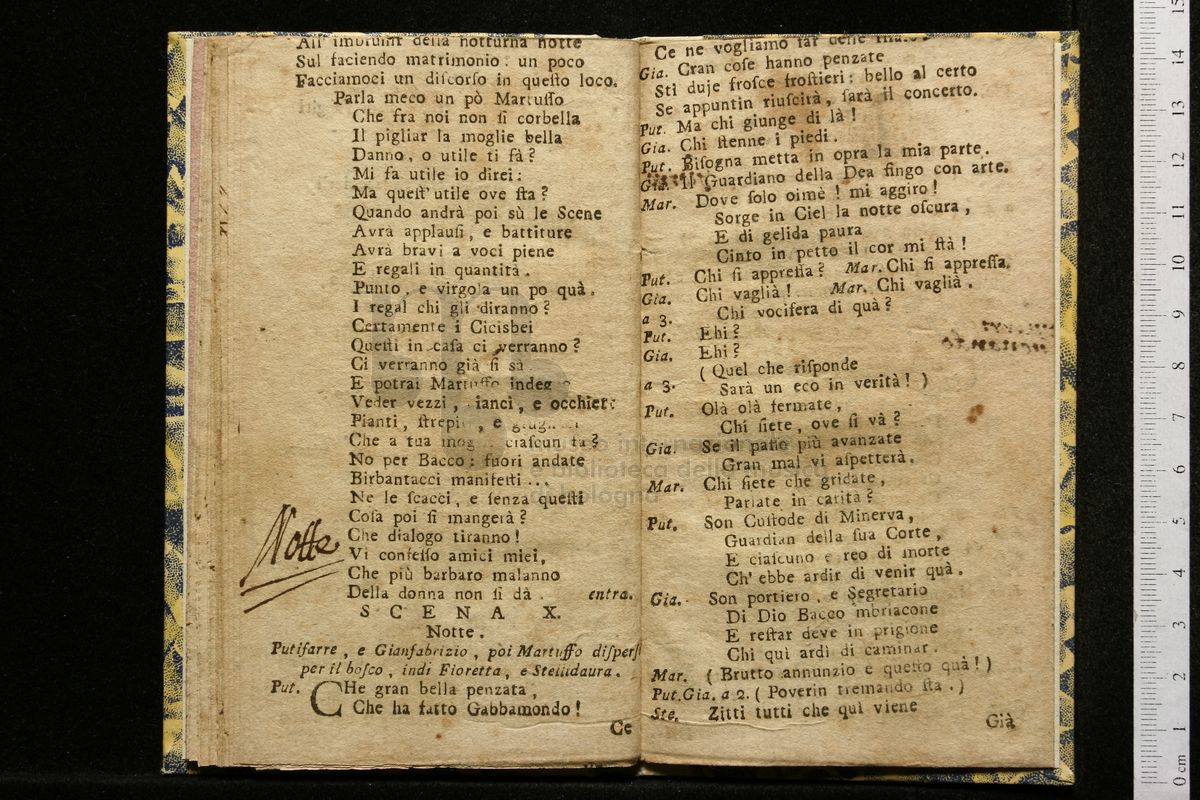 All' imbrunir della notturna notte
Sul faciendo matrimonio: un poco
Facciamoci un diſcorſo in queſto loco.
Parla meco un pò Martuffo
Che fra noi non ſi corbella
Il pigliar la moglie bella
Danno, o utile ti fà?
Mi fa utile io direi:
Ma queſt' utile ove ſta?
Quando andrà poi sù le Scene
Avrà applauſi, e battiture
Avrà bravi a voci piene
E regali in quantità.
Punto, e virgola un po quà.
I regal chi gli diranno?
Certamente i Cicisbei
Queſti in caſa ci verranno?
Ci verranno già ſi sà
E potrai Martuffo
Veder vezzi, e occhiett
Pianti, ſtrepi , e
Che a tua ciaſcun fa?
No per Bacco: fuori andate
Birbantacci manifeſti ...
Ne le ſcacci, e ſenza queſti
Coſa poi ſi mangerà?
Notte
Che dialogo tiranno!
Vi confeſſo amici miei,
Che più barbaro malanno
Della donna non ſi dà. entra.
SCENA X.
Notte.
Putifarre, e Gianfabrizio, poi Martuffo diſperſ
per il boſco, indi Fioretta, e Stellidaura.
Put. CHe gran bella penzata,
Che ha fatto Gabbamondo!
Ce
Ce ne vogliamo far delle
Gia. Cran coſe hanno penzate
Sti duje froſce froſtieri: bello al certo
Se appuntin riuſcirà, ſarà il concerto.
Put. Ma chi giunge di là!
Gia. Chi ſtenne i piedi.
Put. Biſogna metta in opra la mia parte.
Gia. Il Guardiano della Dea fingo con arte.
Mar. Dove ſolo oimè! mi aggiro!
Sorge in Ciel la notte oſcura,
E di gelida paura
Cinto in petto il cor mi ſtà!
Put. Chi ſi appreſſa? Mar. Chi ſi appreſſa.
Gia. Chi vaglià! Mar. Chi vaglià.
a 3. Chi vocifera di quà?
Put. Ehi?
Gia. Ehi?
(Quel che riſponde
a 3. Sarà un eco in verità!)
Put. Olà olà fermate,
Chi ſiete, ove ſi và?
Gia. Se il paſſo più avanzate
Gran mal vi aſpetterà.
Mar. Chi ſiete che gridate,
Parlate in carità?
Put. Son Cuſtode di Minerva,
Guardian della ſua Corte,
E ciaſcuno è reo di morte
Ch' ebbe ardir di venir quà.
Gia. Son portiero, e Segretario
Di Dio Bacco mbriacone
E reſtar deve in prigione
Chi quì ardì di caminar.
Mar. (Brutto annunzio e queſto quà!)
Put. Gia. a 2. (Poverin tremando ſta.)
Ste. Zitti tutti che quì viene
Già